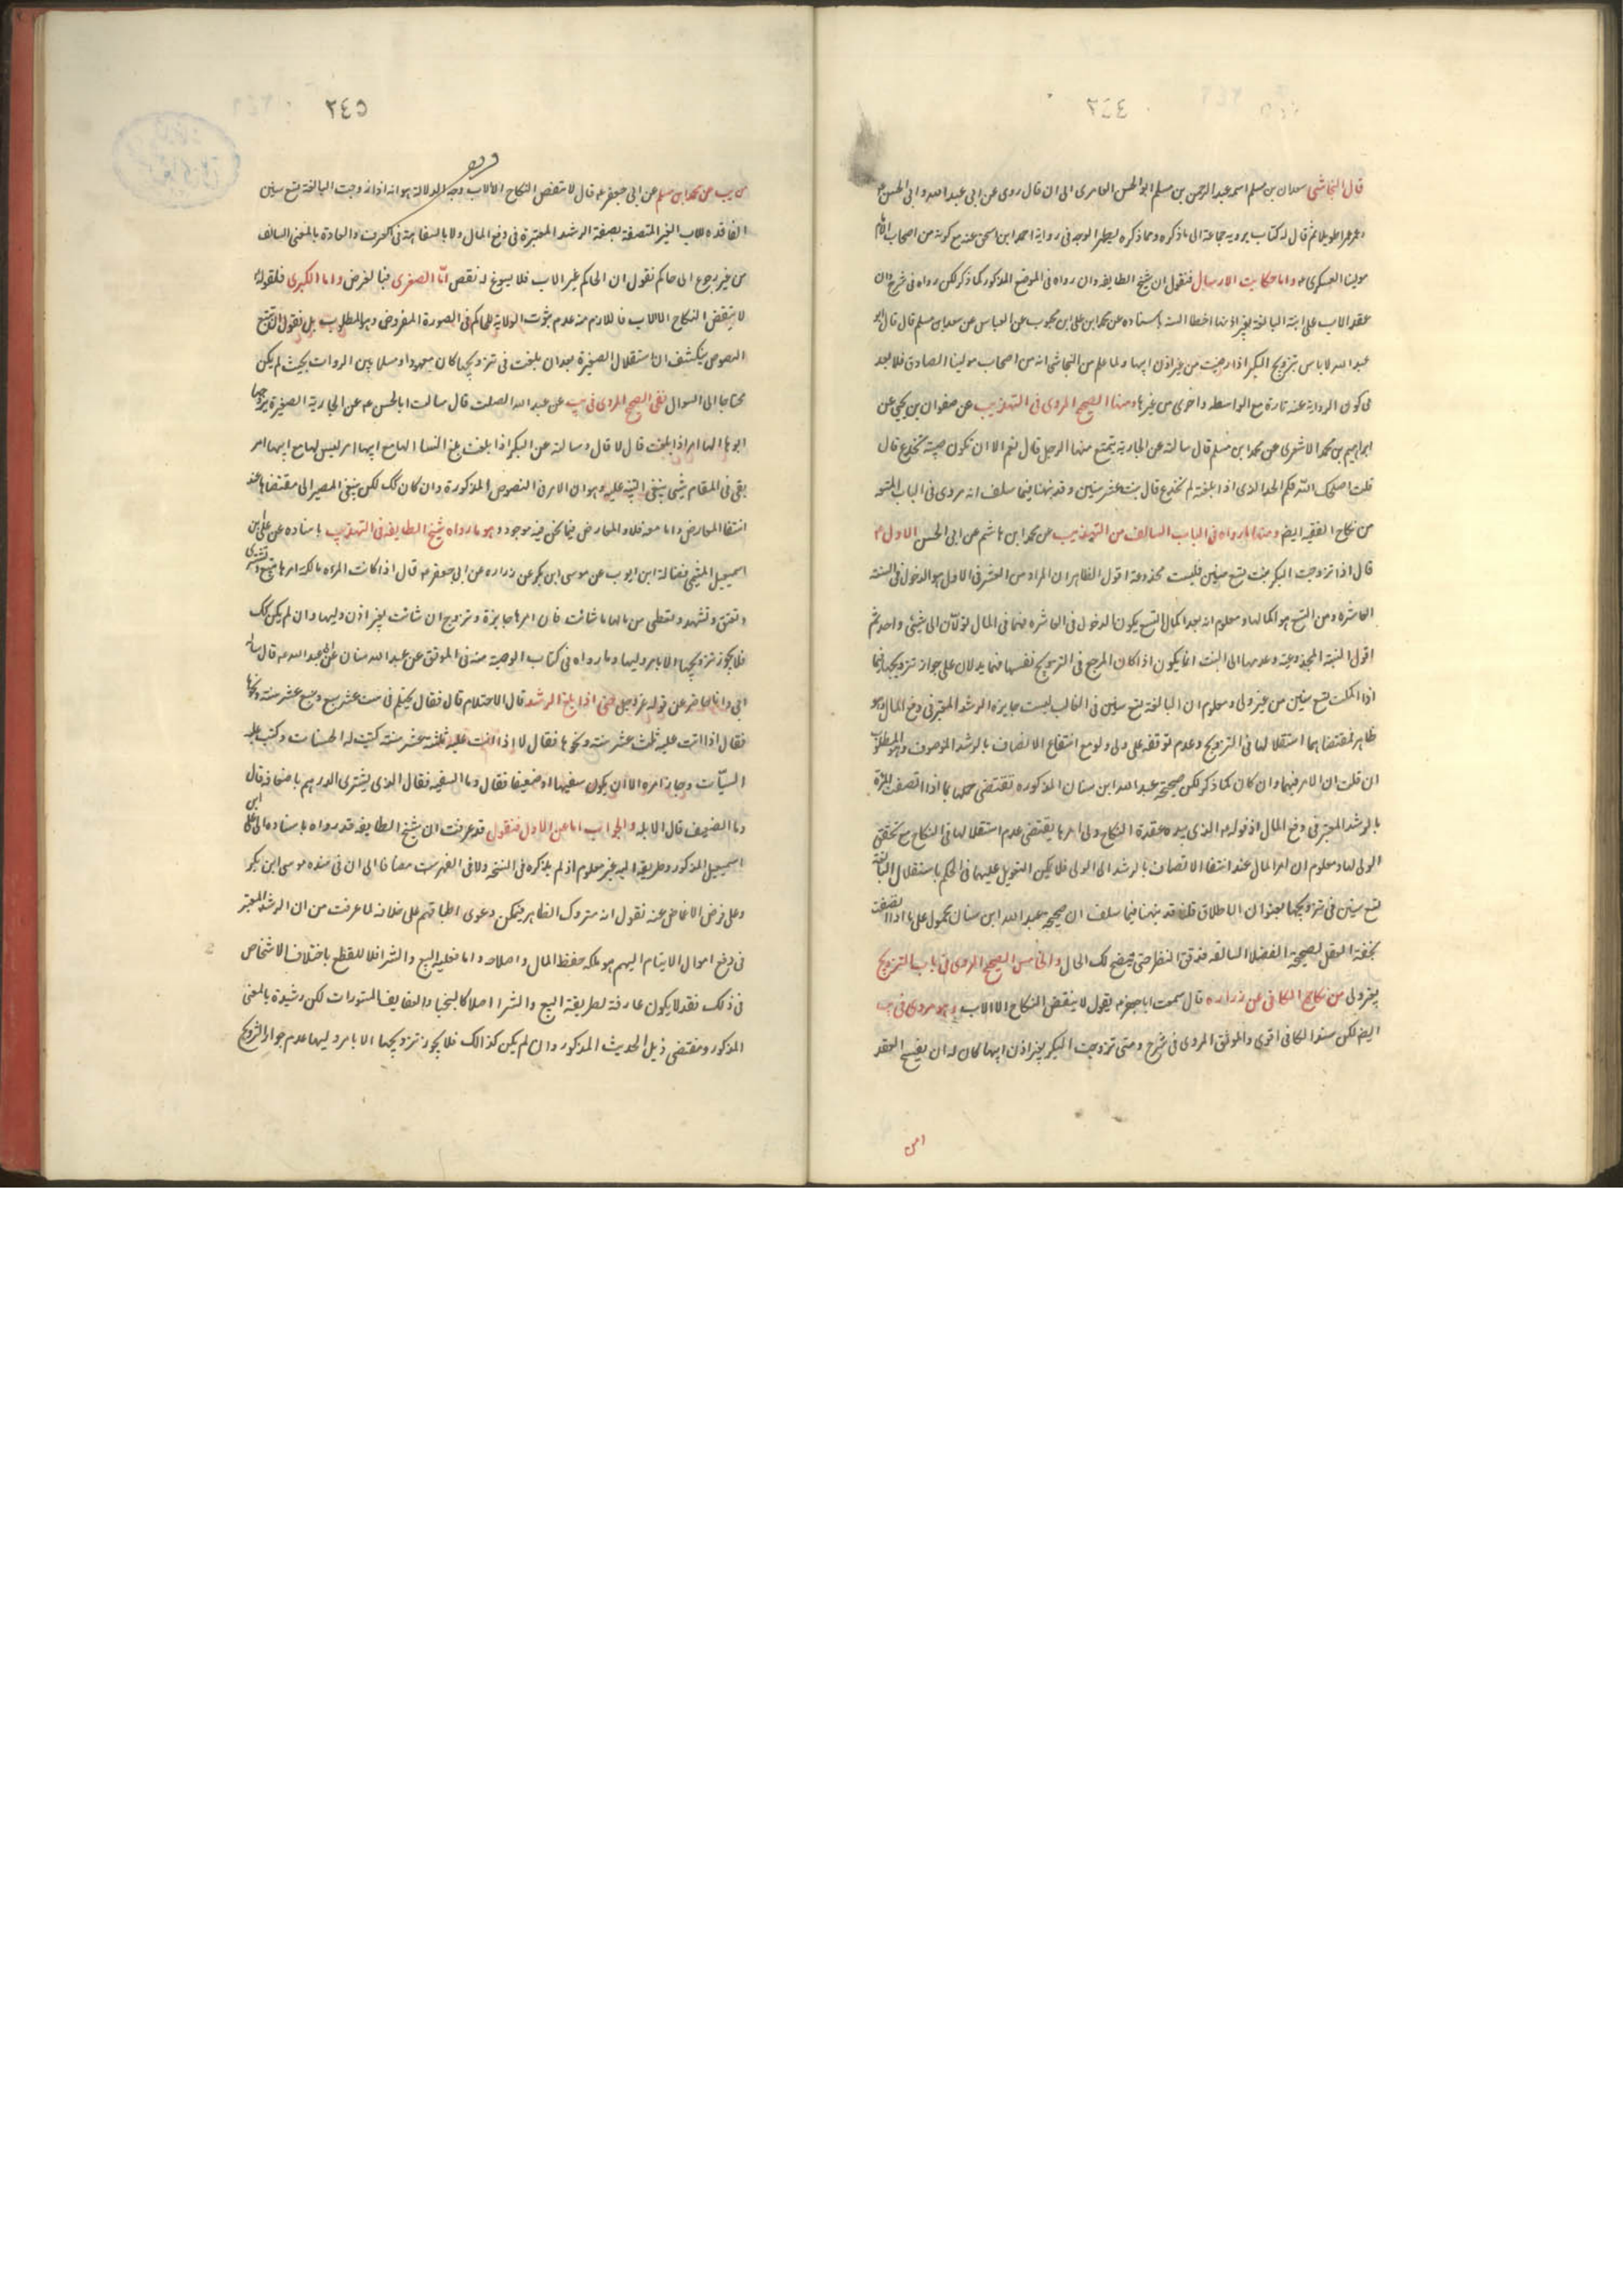 ٢٤٤
قال النجاشى سعدان بن مسلم اسمه عبد الرحمن بن مسلم ابو الحسن العامرى الى ان قال روى عن ابى عبد الله و ابى الحسن ع
و عمر عمرا طويلا ثم قال له كتاب يرويه جماعة الى ما ذكره و مما ذكره يظهر الوجه فى رواية احمد ابن اسحق عنه مع كونه من اصحاب
مولينا العسكرى ع و اما حكايت الارسال فنقول ان شيخ الطايفه و ان رواه فى الموضع المذكور كما ذكر لكن رواه فى شرح و ان
عقد الاب على ابنته البالغة بغير اذنها اخطا السنه باسناده عن محمد ابن على ابن محبوب عن العباس عن سعدان مسلم قال قال ابو
عبد الله لا باس بتزويج البكر اذا رضيت من غير اذن ابيها و لما علم من النجاشى انه من اصحاب مولينا الصادق فلا بعد
فى كون الرواية عنه تارة مع الواسطه و اخرى من غيرها و منها الصحيح المروى فى التهذيب عن صفوان بن يحيى عن
ابراهيم بن محمد الاشعرى عن محمد ابن مسلم قال سالته عن الجارية يتمتع منها الرجل قال نعم الا ان تكون صبية تخدع قال
قلت اصلحك الله فكم الحد الذى اذا بلغته لم تخدع قال بنت عشر سنين و قد نبهنا فيما سلف انه مروى فى الباب المتعه
من نكاح الفقيه ايضم و منها ما رواه فى الباب السالف من التهذيب عن محمد ابن هاشم عن ابى الحسن الاول ع
قال اذا تزوجت البكر بنت تسع سنين فليست مخدوعة اقول الظاهر ان المراد من العشر فى الاول هو الدخول فى السنة
العاشره و من التسع هو اكمالها و معلوم انه بعد اكمال التسع يكون الدخول فى العاشره فهما فى المال يؤلان الى شيئى واحد ثم
اقول النسبة المخدوعية و عدمها الى البنت انما يكون اذا كان المرجع فى التزويج نفسها فهما يدلان على جواز تزويجها فيما
اذا اكملت تسع سنين من غير ولى و معلوم ان البالغة تسع سنين فى الغالب ليست حايزه الرشد المعتبر فى دفع المال و هو
ظاهر فمقتضاهما استقلالها فى التزويج و عدم توقفه على ولى و لو مع انتفاء الاتصاف بالرشد الموصوف و هو المطلوب
ان قلت ان الامر فيهما و ان كان كما ذكر لكن صحيحة عبد الله ابن سنان المذكوره تقتضى حملهما بما اذا اتصفت المراة
بالرشد المعتبر فى دفع المال اذ قوله ع الذى بيده عقدة النكاح ولى امرها يقتضى عدم استقلالها فى النكاح مع تحقق
الولى لها و معلوم ان امر المال عند انتفاء الاتصاف بالرشد الى الولى فلا يمكن التعويل عليهما فى الحكم باستقلال البالغة
تسع سنين فى تزويجها بعنوان الاطلاق قلنا قد نبهنا فيما سلف ان صحيحة عبد الله ابن سنان محمول على ما اذا اتصفت
بخفة العقل لصحيحة الفضلا السالفه فدقق النظر حتى يتضح لك الحال و الخامس الصحيح المروى فى باب التزويج
بغير ولى من نكاح الكافى عن زراره قال سمعت ابا جعفر ع يقول لا ينقض النكاح الا الاب و هو مروى فى يب
ايضم لكن سند الكافى اقوى و الموثق المروى فى شرح و متى تزوجت البكر بغير اذن ابيها كان له ان يفسخ العقد
٢٤٥
من يب عن محمد ابن مسلم عن ابى جعفر ع قال لا ينقض النكاح الا الاب وجه الدلالة هو انه اذا تزوجت البالغة تسع سنين
الفاقده للاب الغير المتصفة بصفة الرشد المعتبرة فى دفع المال و لا بالسفاهة فى العرف و العادة بالمعنى السالف
من غير رجوع الى حاكم نقول ان الحاكم غير الاب فلا يسوغ له نقض امّا الصغرى فبالفرض و اما الكبرى فلقوله ع
لا ينقض النكاح الا الاب فاللازم منه عدم ثبوت الولاية للحاكم فى الصورة المفروض و هو المطلوب بل نقول ان تتبع
النصوص ينكشف ان استقلال الصغيرة بعد ان بلغت فى تزويجها كان معهودا و مسلما بين الروات بحيث لم يكن
محتاجا الى السوال نفى الصحيح المروى فى يب عن عبد الله الصلت قال سالت ابا الحسن ع عن الجارية الصغيرة يزوجها
ابوها الها امر اذا بلغت قال لا قال و سالته عن البكر اذا بلغت مبلغ النسا الها مع ابيها امر ليس لها مع ابيها امر
بقى فى المقام شيئى ينبغى التنبيه عليه و هو ان الامر فى النصوص المذكورة و ان كان كك لكن ينبغى المصير الى مقتضاها عند
انتفا المعارض و اما معه فلا و المعارض فيما نحن فيه موجود و هو ما رواه شيخ الطايفه فى التهذيب باسناده عن على بن
اسمعيل الميثمى عن فضالة ابن ايوب عن موسى ابن بكر عن زراره عن ابى جعفر ع قال اذا كانت المراه مالكة امرها تبيع و تشترى
و تعتق و تشهد و تعطى من مالها ما شائت فان امرها جايزة و تزوج ان شائت بغير اذن وليها و ان لم يكن كك
فلا يجوز تزويجها الا بامر وليها و ما رواه فى كتاب الوصية منه فى الموثق عن عبد الله سنان عن ابى عبد الله ع قال ساله
ابى و انا حاضر عن قوله عز و جل حتى اذا بلغ الرشد قال الاحتلام قال فقال يحتلم فى ست عشر و سبع عشر سنة و نحوها
فقال اذا اتت عليه ثلث عشر سنة و نحوها فقال لا اذا اتت عليه ثلثة عشر سنة كتبت له الحسنات و كتب عليه
السيّات و جاز امره الا ان يكون سفيها او ضعيفا فقال و ما السفيه فقال الذى يشترى الدرهم باضعافه قال
و ما الضعيف قال الابله و الجواب اما عن الاول فنقول قد عرفت ان شيخ الطايفه قد رواه باسناده الى على ابن
اسمعيل المذكور و طريقه اليه غير معلوم اذ لم يذكره فى المشيخة و لا فى الفهرست مضافا الى ان فى سنده موسى ابن بكر
و على فرض الاغماض عنه نقول انه متروك الظاهر فيمكن دعوى اطباقهم على خلافه لما عرفت من ان الرشد المعتبر
فى دفع اموال الايتام اليهم هو ملكه حفظ المال و اصلاحه و اما فعلية البيع و الشرا فلا للقطع باختلاف الاشخاص
فى ذلك فقد لا يكون عارفة لطريقة البيع و الشرا اصلا كالنجبا و العفايف المستورات لكن رشيدة بالمعنى
المذكور و مقتضى ذيل الحديث المذكور و ان لم يكن كذالك فلا يجوز تزويجها الا بامر وليها عدم جواز التزويج